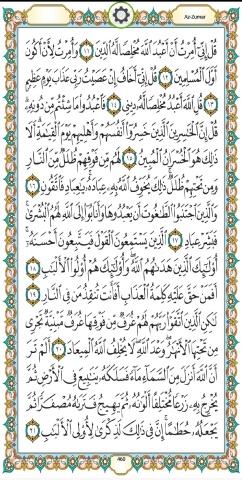 Az-Zumar
قُلْ إِنِّىٓ أُمِرْتُ أَنْ أَعْبُدَ ٱللَّهَ مُخْلِصًا لَّهُ ٱلدِّينَ ١١ وَأُمِرْتُ لِأَنْ أَكُونَ
أَوَّلَ ٱلْمُسْلِمِينَ ١٢ قُلْ إِنِّىٓ أَخَافُ إِنْ عَصَيْتُ رَبِّى عَذَابَ يَوْمٍ عَظِيمٍ
١٣ قُلِ ٱللَّهَ أَعْبُدُ مُخْلِصًا لَّهُۥ دِينِى ١٤ فَٱعْبُدُوا۟ مَا شِئْتُم مِّن دُونِهِۦ
قُلْ إِنَّ ٱلْخَـٰسِرِينَ ٱلَّذِينَ خَسِرُوٓا۟ أَنفُسَهُمْ وَأَهْلِيهِمْ يَوْمَ ٱلْقِيَـٰمَةِ أَلَا
ذَٰلِكَ هُوَ ٱلْخُسْرَانُ ٱلْمُبِينُ ١٥ لَهُم مِّن فَوْقِهِمْ ظُلَلٌ مِّنَ ٱلنَّارِ
وَمِن تَحْتِهِمْ ظُلَلٌ ذَٰلِكَ يُخَوِّفُ ٱللَّهُ بِهِۦ عِبَادَهُۥ يَـٰعِبَادِ فَٱتَّقُونِ ١٦
وَٱلَّذِينَ ٱجْتَنَبُوا۟ ٱلطَّـٰغُوتَ أَن يَعْبُدُوهَا وَأَنَابُوٓا۟ إِلَى ٱللَّهِ لَهُمُ ٱلْبُشْرَىٰ
فَبَشِّرْ عِبَادِ ١٧ ٱلَّذِينَ يَسْتَمِعُونَ ٱلْقَوْلَ فَيَتَّبِعُونَ أَحْسَنَهُۥٓ
أُو۟لَـٰٓئِكَ ٱلَّذِينَ هَدَىٰهُمُ ٱللَّهُ وَأُو۟لَـٰٓئِكَ هُمْ أُو۟لُوا۟ ٱلْأَلْبَـٰبِ ١٨
أَفَمَنْ حَقَّ عَلَيْهِ كَلِمَةُ ٱلْعَذَابِ أَفَأَنتَ تُنقِذُ مَن فِى ٱلنَّارِ ١٩
لَـٰكِنِ ٱلَّذِينَ ٱتَّقَوْا۟ رَبَّهُمْ لَهُمْ غُرَفٌ مِّن فَوْقِهَا غُرَفٌ مَّبْنِيَّةٌ تَجْرِى
مِن تَحْتِهَا ٱلْأَنْهَـٰرُ وَعْدَ ٱللَّهِ لَا يُخْلِفُ ٱللَّهُ ٱلْمِيعَادَ ٢٠ أَلَمْ تَرَ
أَنَّ ٱللَّهَ أَنزَلَ مِنَ ٱلسَّمَآءِ مَآءً فَسَلَكَهُۥ يَنَـٰبِيعَ فِى ٱلْأَرْضِ ثُمَّ
يُخْرِجُ بِهِۦ زَرْعًا مُّخْتَلِفًا أَلْوَٰنُهُۥ ثُمَّ يَهِيجُ فَتَرَىٰهُ مُصْفَرًّا ثُمَّ
يَجْعَلُهُۥ حُطَـٰمًا إِنَّ فِى ذَٰلِكَ لَذِكْرَىٰ لِأُو۟لِى ٱلْأَلْبَـٰبِ ٢١
460